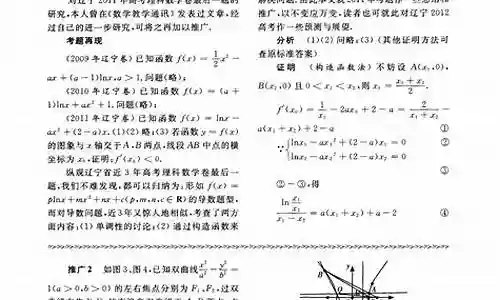 对辽宁2011年高考理科数学卷最后一题的
研究,本人曾在《数学教学通讯》发表过文章,经
过自己的进一步研究,可将之再加以推广.
考题再现
(2009年辽宁卷)已知函数 f(x)=1/2x²-
ax+(a-1)lnx,a>1,问题(略);
(2010年辽宁卷)已知函数 f(x)=(a+
1)lnx+ax²+1,问题(略);
(2011年辽宁卷)已知函数 f(x)=lnx-
ax²+(2-a)x.(1)(2)略;(3)若函数 y=f(x)
的图象与 x 轴交于 A、B 两点,线段 AB 中点的横
坐标为 x₀,证明:f′(x₀)<0.
纵观辽宁省近3年高考理科数学卷最后一
题,我们不难发现,都可以归纳为:形如 f(x)=
plnx+mx²+nx+c(p,m,n,c∈R)的导数题型,
而对导数问题,近3年又惊人地相似,考查了两方
面内容:(1)单调性的讨论;(2)通过构造函数来
推广,以不变应万变,读者也可就此对辽宁2012
高考作一些预测与展望.
分析 (1)(2)问略;(3)(其他证明方法可
查原标准答案)
证明 (构造函数法)不妨设 A(x₁,0),
B(x₂,0)且 0<x₁<x₂,则 x₀=(x₁+x₂)/2.
f′(x₀)=1/x₀-2ax₀+2-a=2/(x₁+x₂)-
a(x₁+x₂)+2-a ①
∵{lnx₁-ax₁²+(2-a)x₁=0 ②
lnx₂-ax₂²+(2-a)x₂=0 ③
②-③,得
ln(x₁/x₂)/(x₁-x₂)=a(x₁+x₂)+a-2 ④
推广2 如图3、图4,已知双曲线x²/a²-y²/b²=
1(a>0,b>0)的左右焦点分别为 F₁、F₂,过双
B
y
A